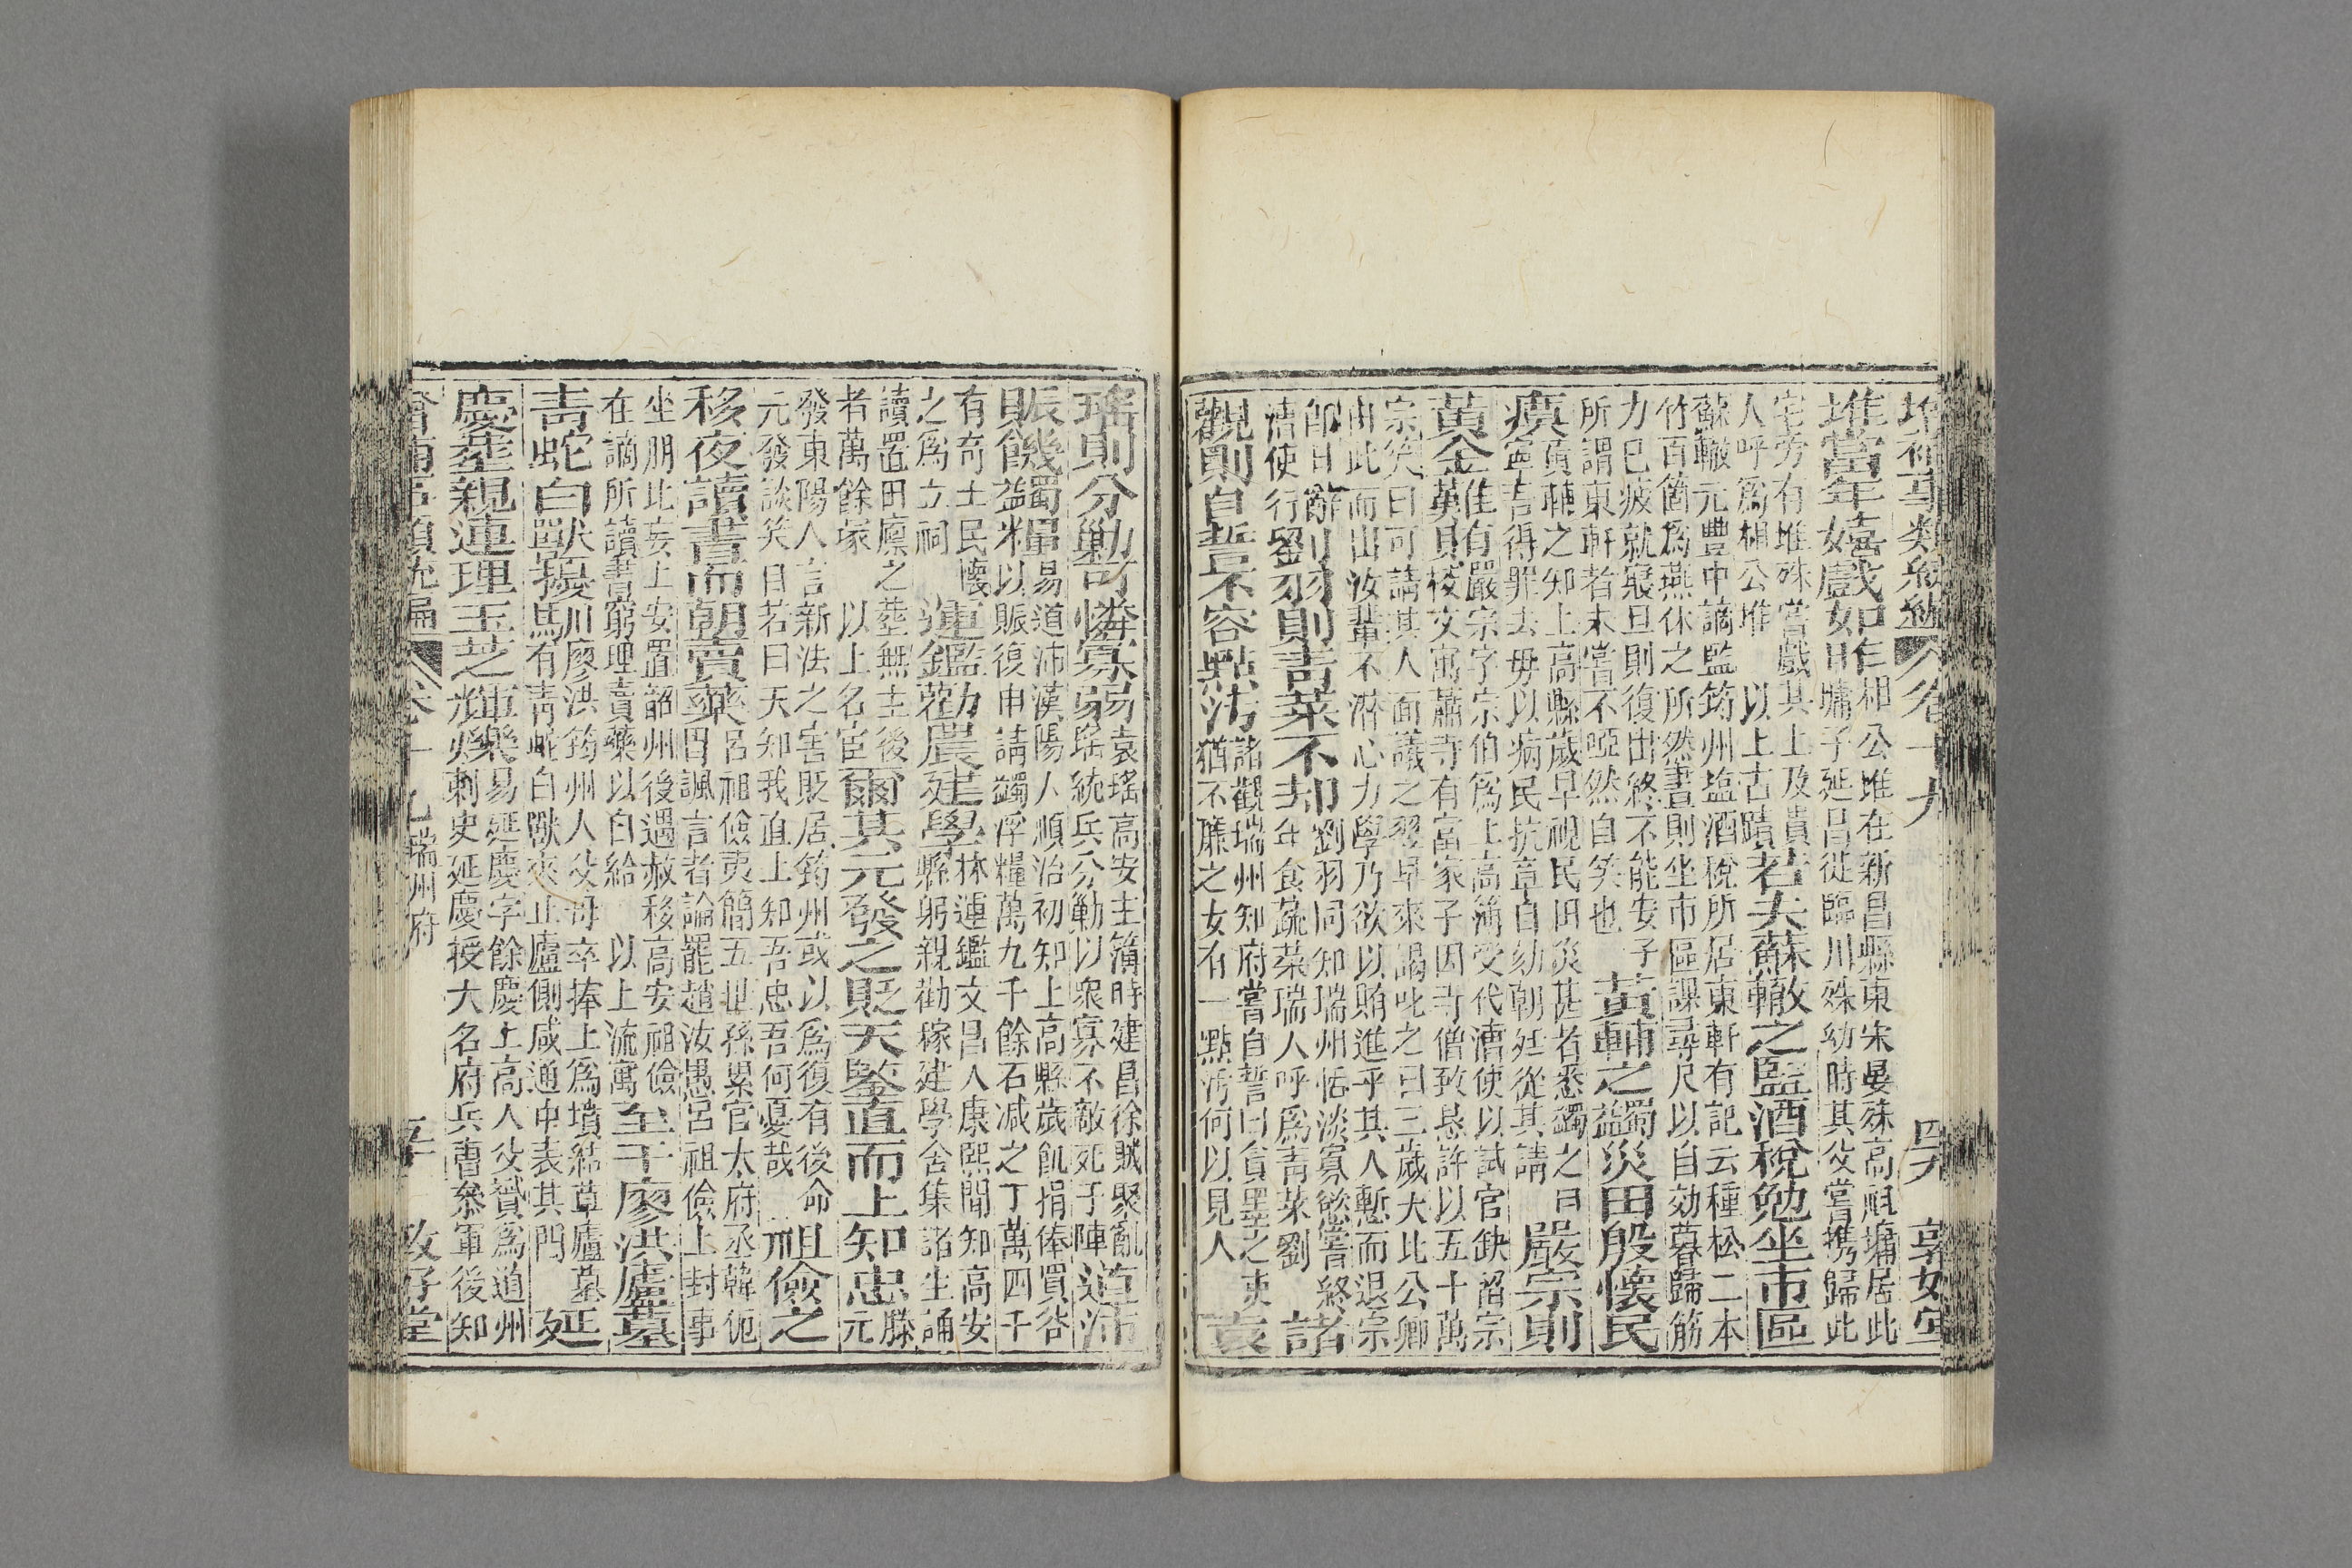 增補事類統編 卷十九 四六 敦好堂
堆當年嬉戲如昨
相公堆在新昌縣東朱晏殊高祖墉居此
墉子延昌徙臨川殊幼時其父嘗携歸此
宅旁有堆殊嘗戲其上及貴
人呼爲相公堆 以上古蹟
若夫蘇轍之監酒稅勉坐市區
蘇轍元豐中謫監筠州塩酒稅所居東軒有記云種松二本
竹百箇爲燕休之所然晝則坐市區課尋尺以自効暮歸筋
力已疲就寢旦則復出終不能安子
所謂東軒者未嘗不啞然自笑也
黃輔之蠲災田殷懷民
瘼
黃輔之知上高縣歲旱視民田災甚者悉蠲之曰
寧吉得罪去毋以病民抗章自劾朝廷從其請
嚴宗則
黃金難賄
嚴宗字宗伯爲上高簿受代漕使以試官缺詔宗
校文寓蕭寺有富家子因寺僧致懇許以五十萬
宗笑曰可請其人面議之翌早來謁叱之曰三歲大比公卿
由此而出汝輩不潜心力學乃欲以賄進乎其人慙而退宗
卽日辭
漕使行
劉羽則青菜不却
劉羽同知瑞州恬淡寡慾嘗終
年食蔬菜瑞人呼爲青菜劉
諸
觀則自誓不容點汚
諸觀瑞州知府嘗自誓曰貪墨之吏
猶不廉之女有一點汚何以見人
袁
瑤則分勦可憐寡弱
袁瑤高安主簿時建昌徐賊聚亂
瑤統兵分勦以衆寡不敵死于陣
道沛
賑饑蠲糧
易道沛漢陽人順治初知上高縣歲飢捐俸買谷
以賑復申請蠲浮糧萬九千餘石减之丁萬四千
有奇士民懷
之爲立祠
連鑑勸農建學
林連鑑文昌人康熙間知高安
縣躬親勸稼建學舍集諸生誦
讀置田廩之塟無主後
者萬餘塚 以上名宦
爾其元發之貶天鑒直而上知忠
滕
元
發東陽人言新法之害貶居筠州或以爲復有後命
元發談笑自若曰天知我直上知吾忠吾何憂哉
祖儉之
移夜讀書而朝賣藥
呂祖儉夷簡五世孫累官太府丞韓侂
冑諷言者論罷趙汝愚呂祖儉上封事
坐朋比妄上安置韶州後遇赦移高安祖儉
在謫所讀書窮理賣藥以自給 以上流寓
至于廖洪廬墓
青蛇白獸擾馴
廖洪筠州人父母卒捧土爲墳結草廬墓
有青蛇白獸來止廬側咸通中表其門
延
慶塋親連理玉芝輝爍
易延慶字餘慶上高人父贇爲道州
刺史延慶授大名府兵曹叅軍後知
增補事類統編 卷十九 瑞州府 敦好堂